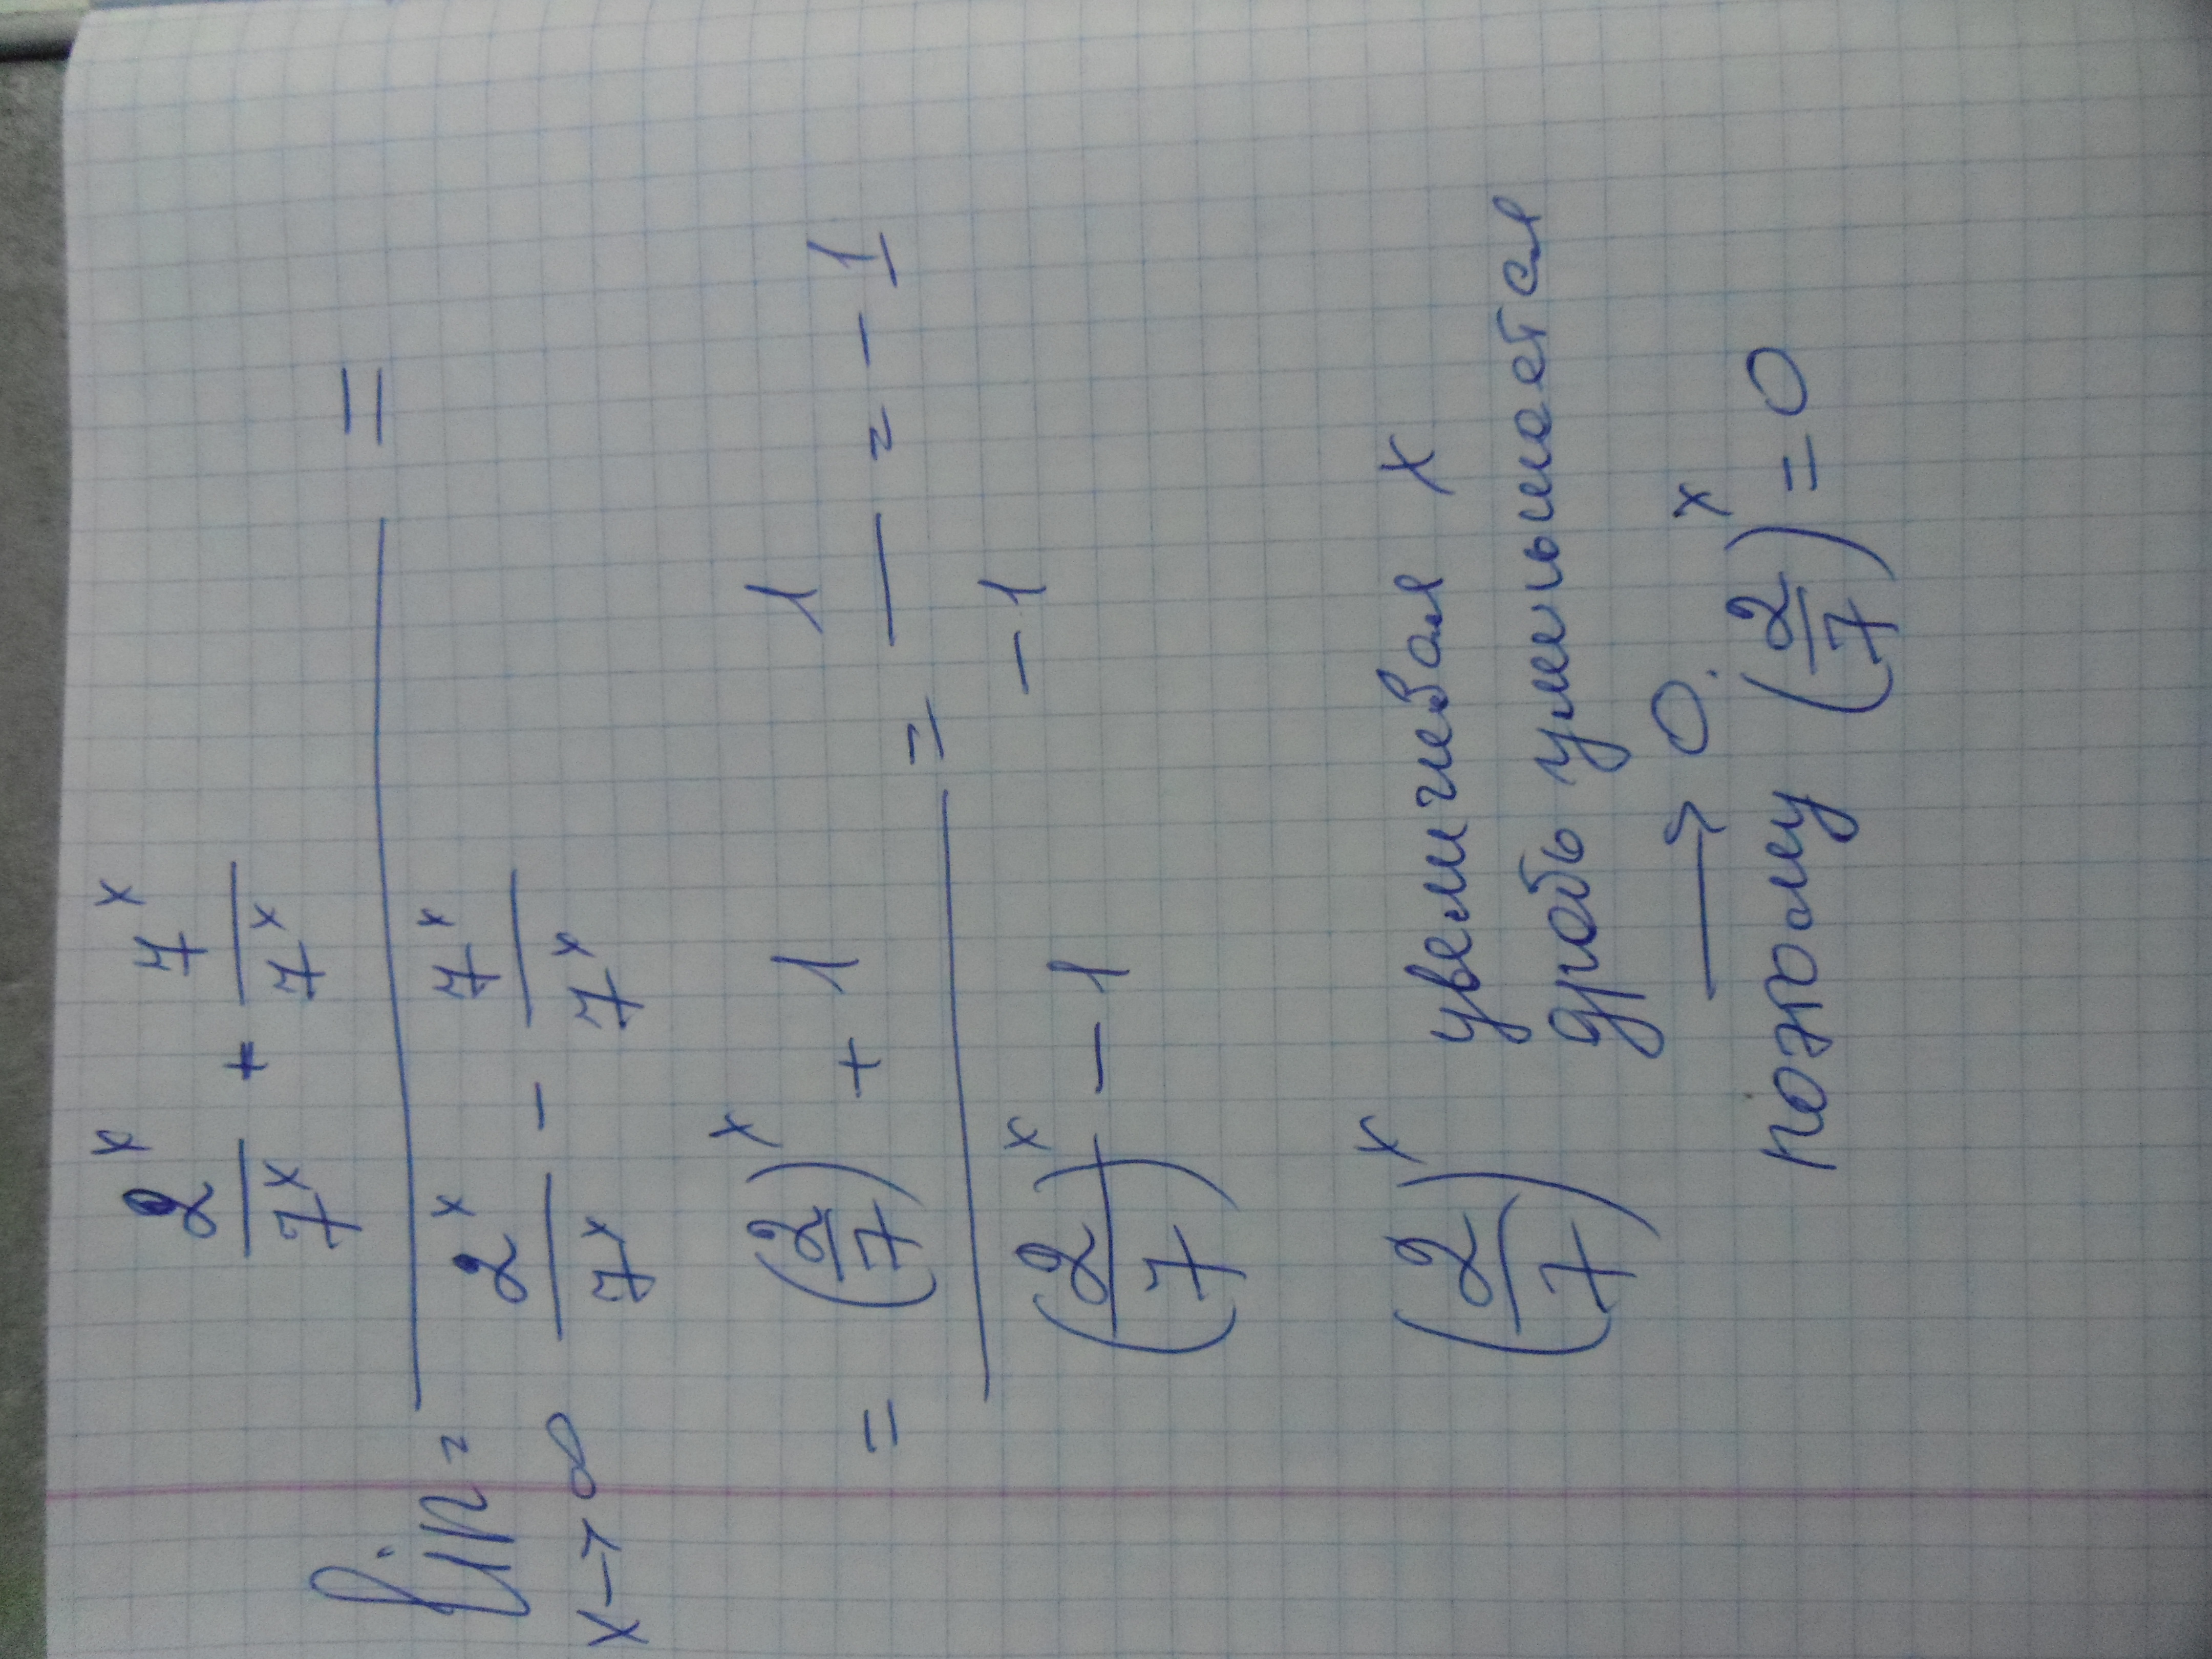 2ˣ/7ˣ + 7ˣ/7ˣ
lim = ―――――― =
x→∞ 2ˣ/7ˣ - 7ˣ/7ˣ
= ((2/7)ˣ + 1)/((2/7)ˣ - 1) = 1/-1 = -1
(2/7)ˣ увеличивая x
дробь уменьшается
→ 0.
поэтому (2/7)ˣ = 0